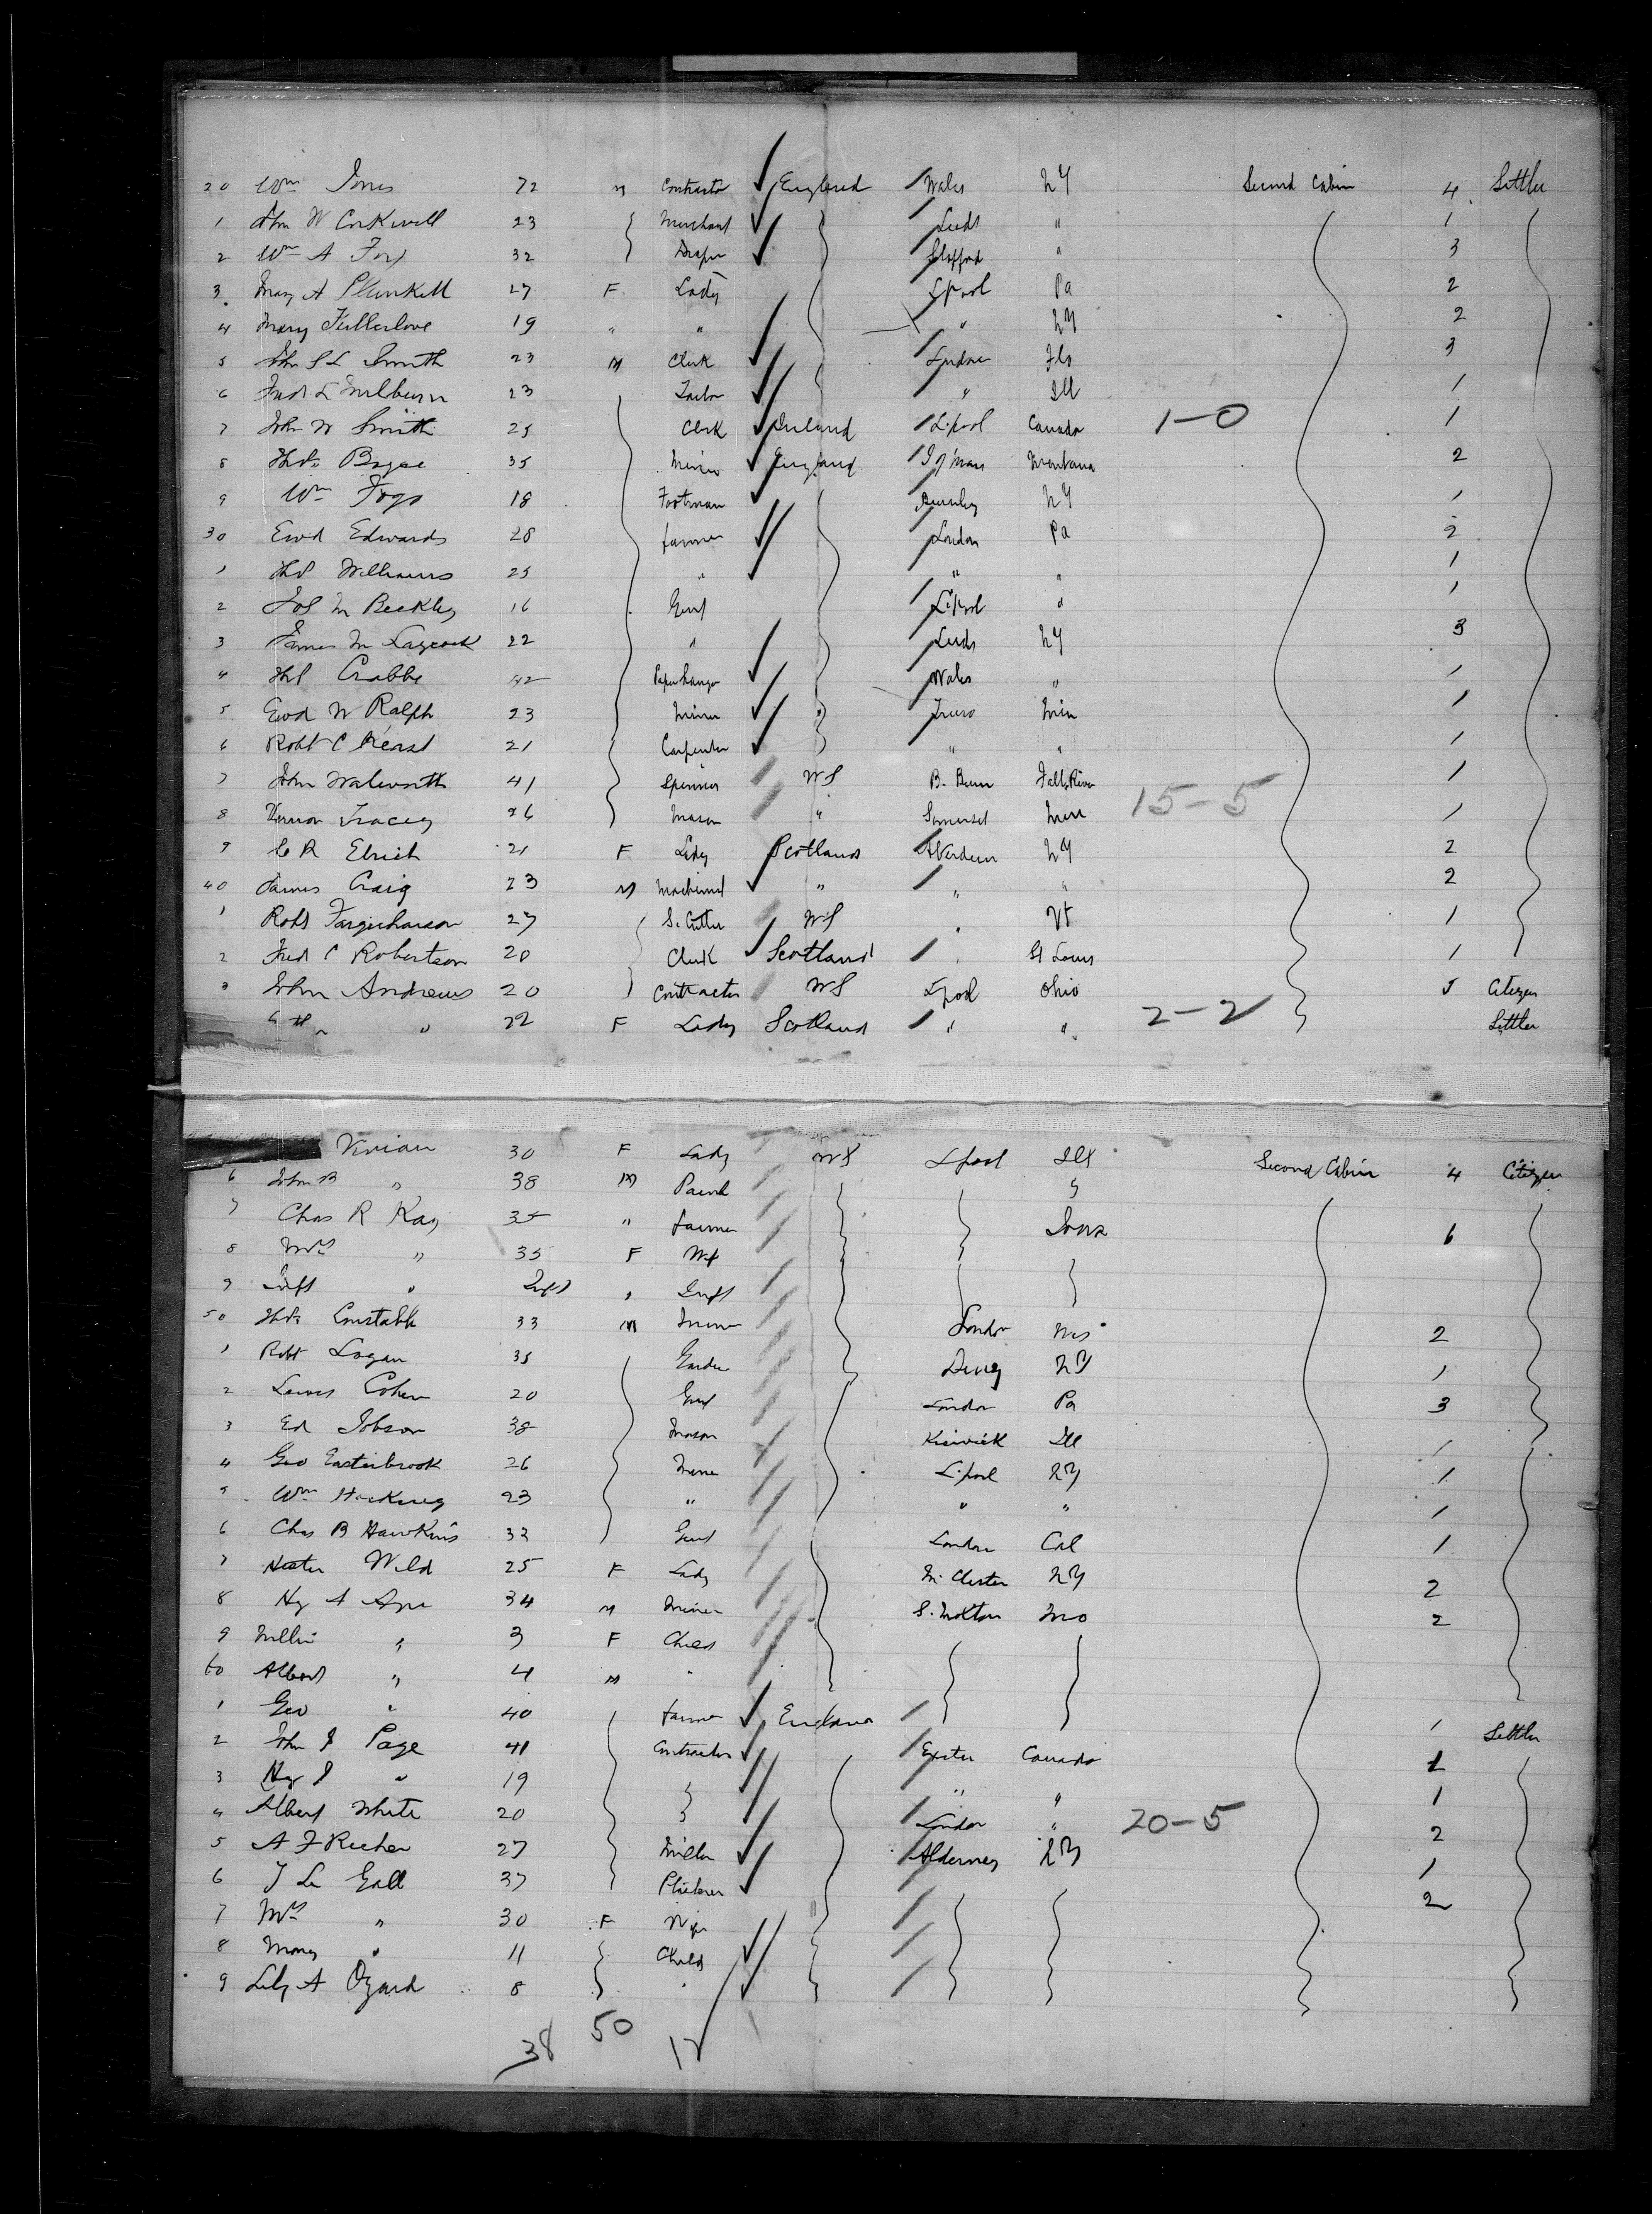 20 Wm Jones 72 M Contractor England Wales NY Second Cabin 4 Settler
1 John W Corkwell 23 Merchant Leeds " 1
2 Wm A Fox 32 Draper Stafford " 3
3 Mary A Plunkett 27 F Lady Lpool Pa 2
4 Mary Fullerlove 19 " " " NY 2
5 John S L Smith 23 M Clerk London Fla 3
6 Fredk L Milburn 23 Tailor " Ill 1
7 John W Smith 25 Clerk Ireland L.pool Canada 1-0 1
8 Thos 35 Miner England I of Man Montana 2
9 Wm 18 Footman Burnley NY 1
30 Ewd Edwards 28 farmer London Pa 2
1 Thos Williams 25 " " " 1
2 Jos M Beckley 16 Gent L'pool " 1
3 James M Laycock 22 " Leeds NY 3
4 Thos Crabbe 42 Paperhanger Wales " 1
5 Ewd W Ralph 23 Miner Truro Min 1
6 Robt C Keast 21 Carpenter " " 1
7 John Walworth 41 Spinner US Fall River 15-5 1
8 Vernon Tracey 26 Mason " Somerset 1
9 21 F Lady Scotland Aberdeen NY 2
40 James Craig 23 M Machinist " " " 2
1 Robt Farquharson 27 St Cutter US " Vt 1
2 Fred C Robertson 20 Clerk Scotland " St Louis 1
3 John Andrews 20 Contractor US Lpool Ohio 5 Citizen
4 " 22 F Lady Scotland " " 2-2 Settler
Vivian 30 F Lady US Lpool Ill Second Cabin 4 Citizen
6 John B " 38 M
7 Chas R Kay 35 " farmer Iowa 6
8 Mrs " 35 F Wf
9 Inft " Inft " Inft
50 Thos Constable 33 M Miner London 2
1 Robt Logan 35 NY 1
2 Lewis Cohen 20 Gent London Pa 3
3 Ed Jobson 38 Mason Keswick Ill 1
4 Geo Easterbrook 26 Miner L.pool NY 1
5 Wm Hocking 23 " " " 1
6 Chas B Hawkins 32 Gent London Cal 1
7 Hester Wild 25 F Lady M.Chester NY 2
8 Hy A 34 M Miner S. Molton Mo 2
9 Nellie " 3 F Child
60 Albert " 4 M "
1 Geo " 40 farmer England 1 Settler
2 John J Page 41 Contractor Exeter Canada 1
3 Hy J " 19 " " 1
4 Albert White 20 London " 20-5 2
5 A F Richer 27 Miller Alderney NY 1
6 J Le Gall 37 Plasterer 2
7 Mrs " 30 F Wife
8 " 11 Child
9 Lily A Ozard 8 "
38 50 12